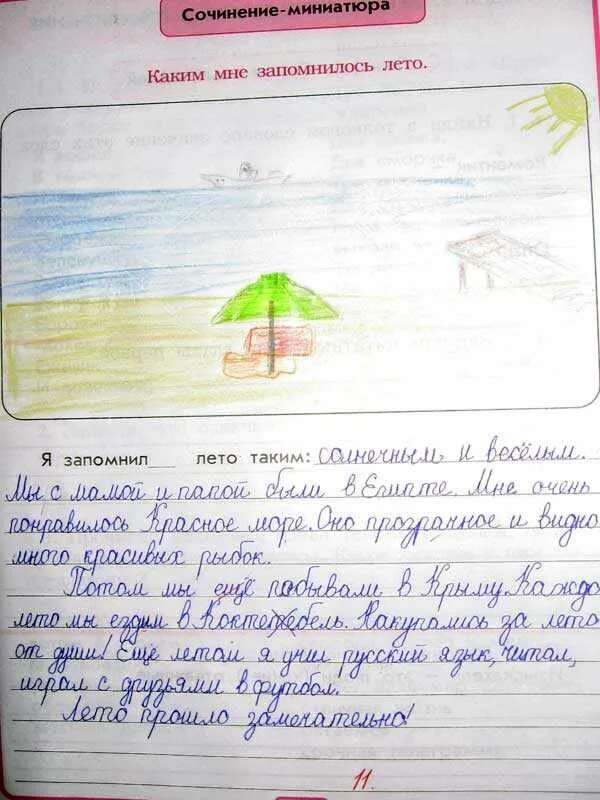 Сочинение-миниатюра
Каким мне запомнилось лето.
Я запомнил___ лето таким: солнечным и весёлым.
Мы с мамой и папой были в Египте. Мне очень
понравилось Красное море. Оно прозрачное и видно
много красивых рыбок.
Потом мы ещё побывали в Крыму. Каждо
лето мы ездим в Коктебель. Накупались за лето
от души! Ещё летом я учил русский язык, читал,
играл с друзьями в футбол.
Лето прошло замечательно!
11.